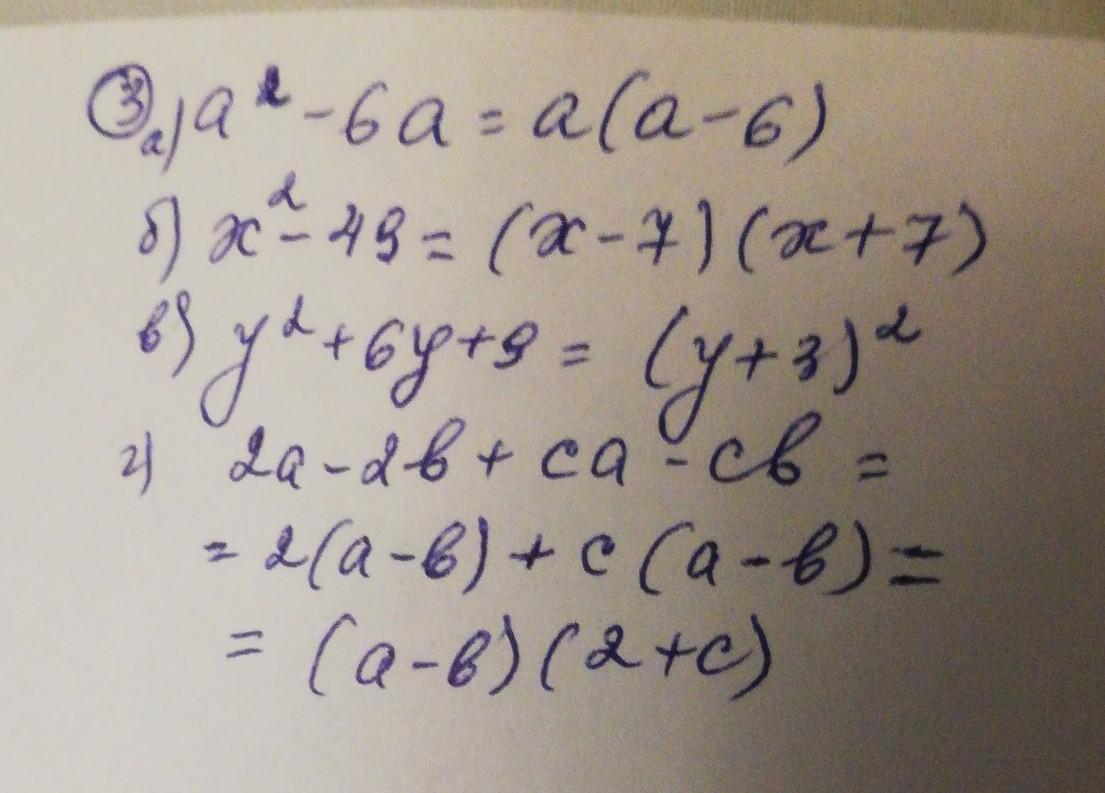 ③ а) a² - 6a = a(a - 6)
б) x² - 49 = (x - 7)(x + 7)
в) y² + 6y + 9 = (y + 3)²
г) 2a - 2в + ca - cв =
= 2(a - в) + c(a - в) =
= (a - в)(2 + c)